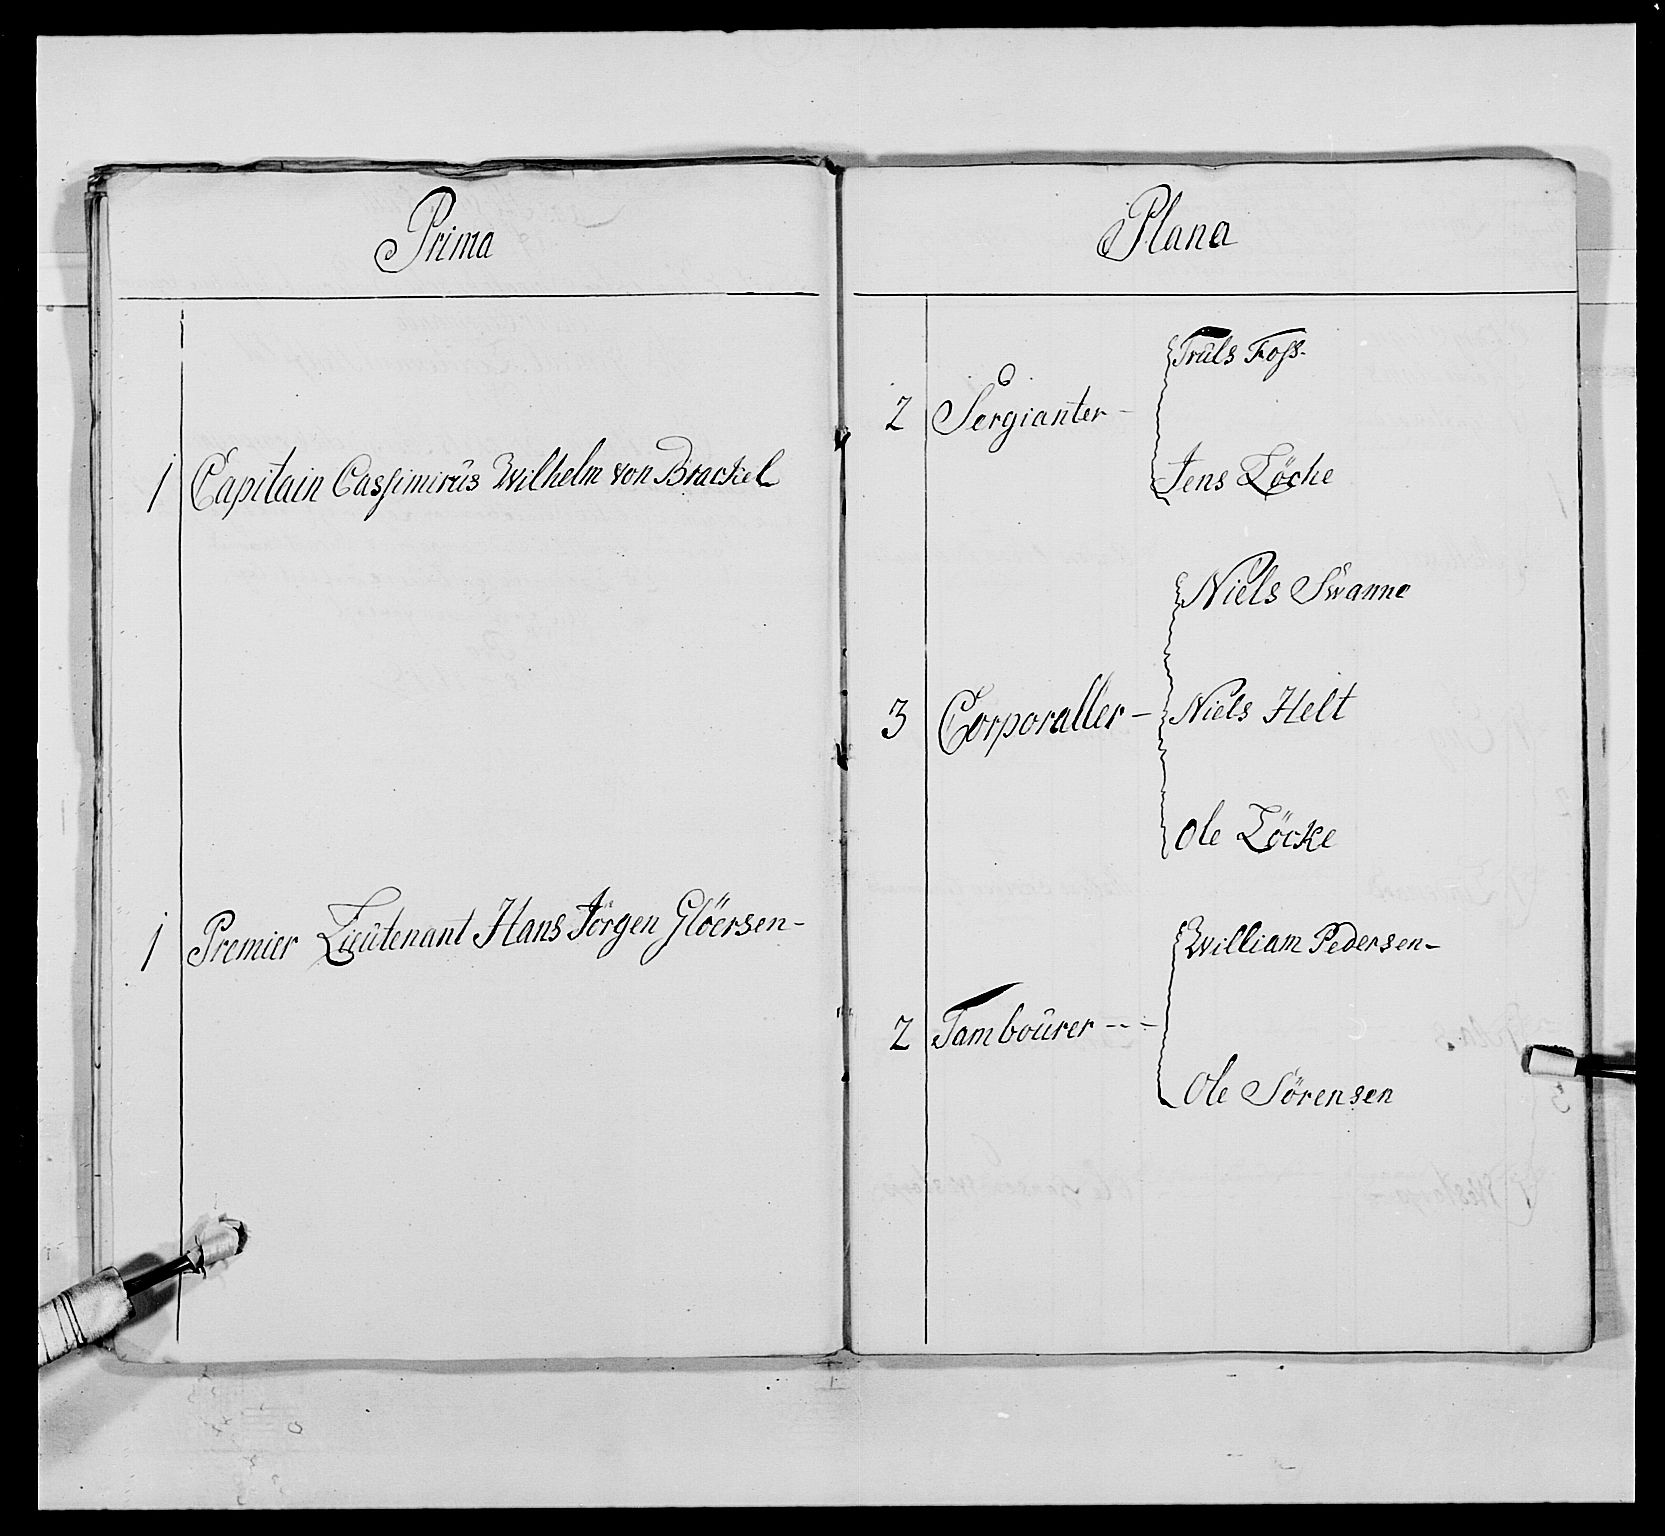 Prima
1 Capitain Cassimirus Wilhelm von Brackel
1 Premier Lieutenant Hans Jörgen Glöersen-
Plana
Truls Foss-
2 Sergianter-
Jens Löcke
Niels Swanne
3 Corporaller- Niels Helt
Ole Löcke
William Pedersen-
2 Tambourer---
Ole Sörensen